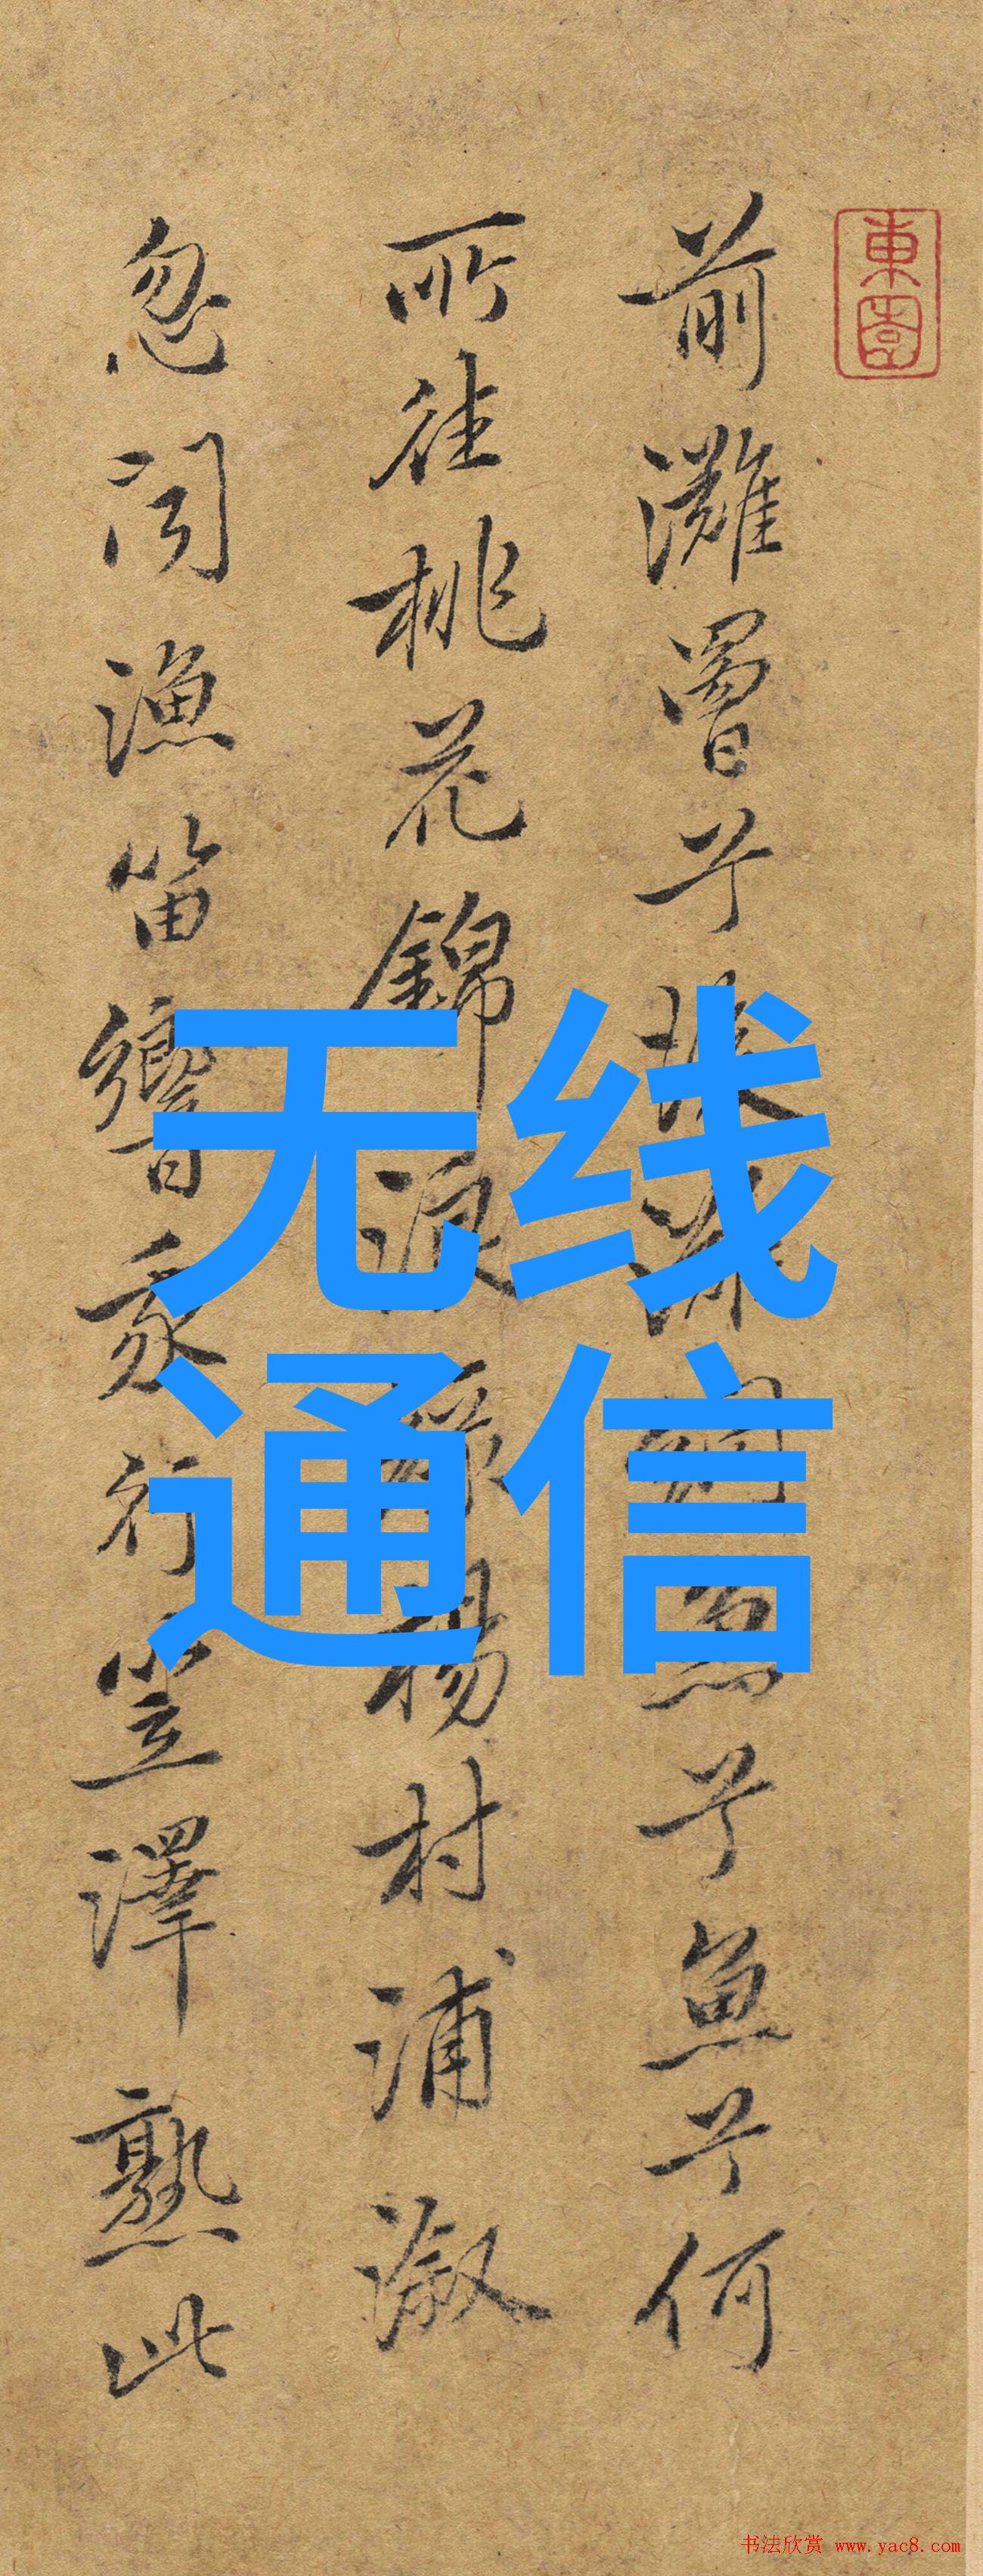 東園
前灘罾兮兮魚兮何
所往桃花錦浪綠楊村浦溆
忽聞漁笛響行笠澤熟此
无线
通信
书法欣赏 www.yac8.com